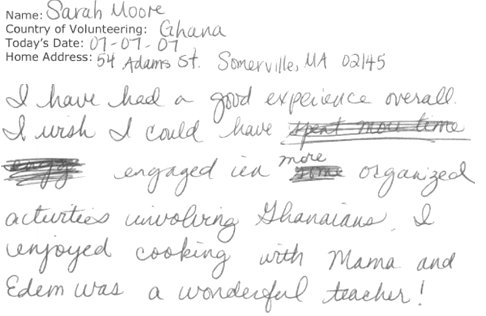 Name: Sarah Moore
Country of Volunteering: Ghana
Today's Date: 07-07-07
Home Address: 54 Adams St. Somerville, MA 02145
I have had a good experience overall.
I wish I could have spent more time
engaged in more organized
activities involving Ghanaians. I
enjoyed cooking with Mama and
Edem was a wonderful teacher!